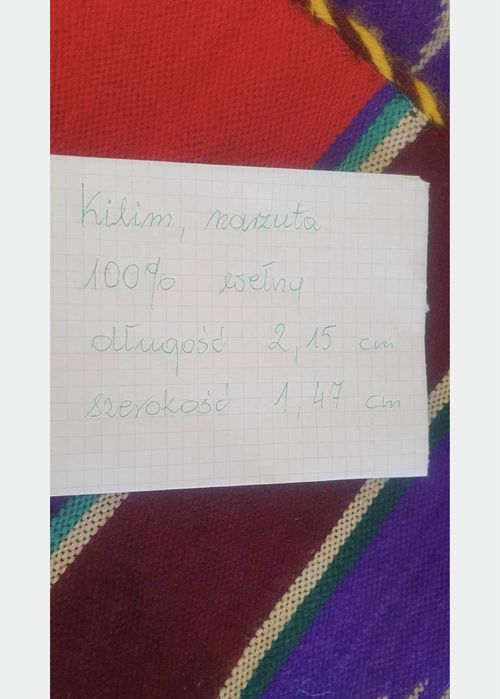 Kilim, narzuta
100% wełny
długość 2,15 cm
szerokość 1,47 cm